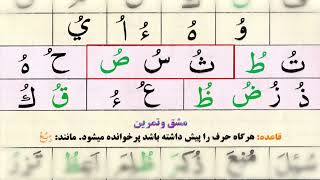 وُ هُ ءُ أُ يُ
تُ طُ ثُ سُ صُ حُ هُ
ذُ زُ ضُ ظُ عُ ءُ قُ كُ
مشق وتمرین
قاعده: هرگاه حرف را پیش داشته باشد پرخوانده میشود. مانند: